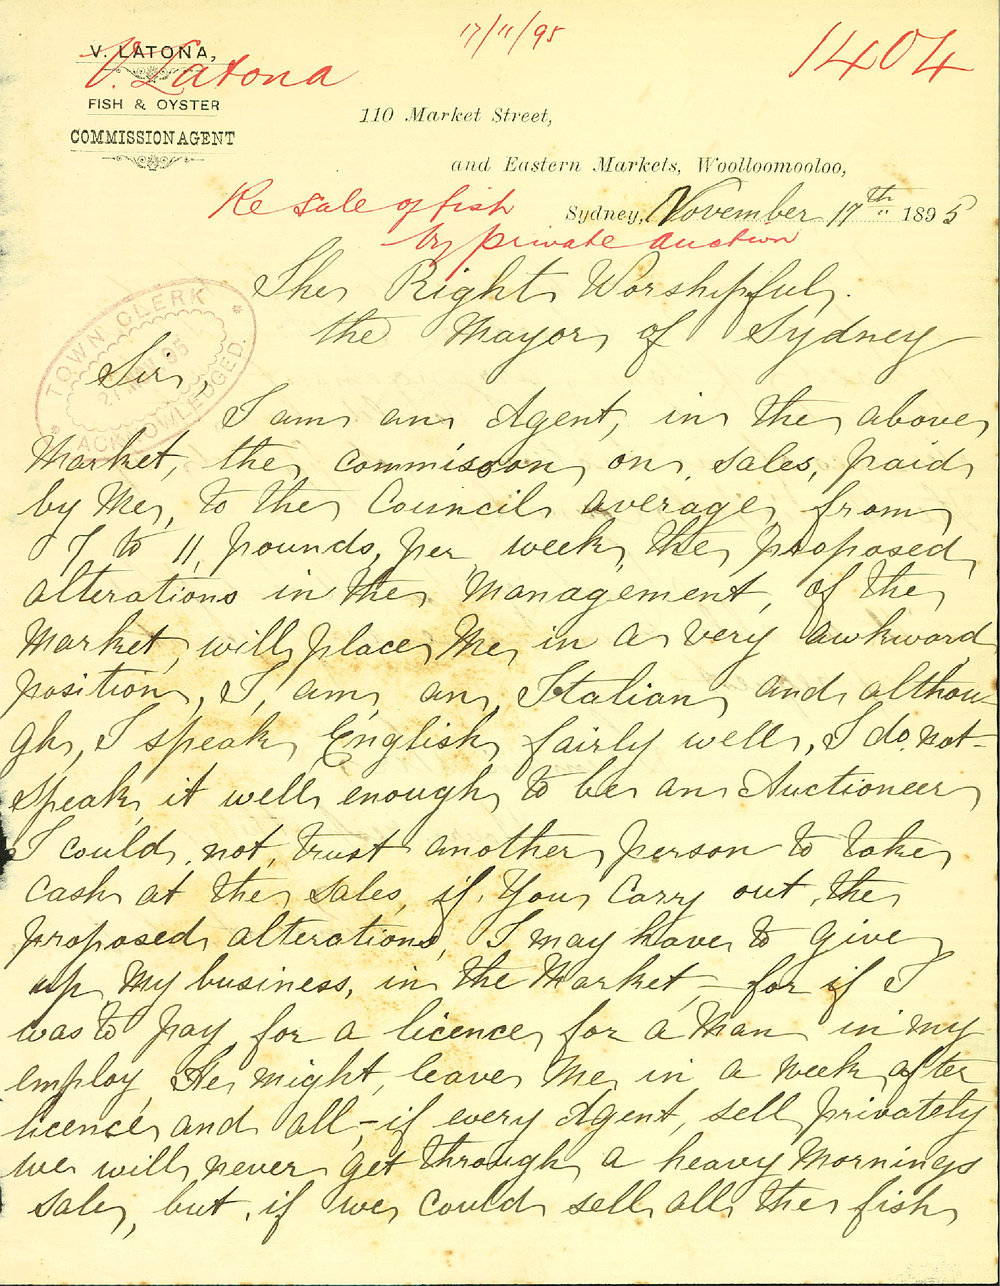 17/11/95
1404
V. LATONA,
V. Latona
FISH & OYSTER
COMMISSION AGENT
110 Market Street,
and Eastern Markets, Woolloomooloo,
Re sale of fish
by private auction
Sydney, November 17th 1895
The Right Worshipful.
the Mayor of Sydney
TOWN CLERK
95
ACKNOWLEDGED.
Sir,
I am an Agent, in the above
Market, the commisson on sales, paid
by Me, to the Council average, from
7 to 11, pounds, per week, the proposed
alterations in the Management, of the
Market, will place Me, in a very awkward
position, I, am, an, Italian and althou-
gh, I speak English fairly well, I do not-
speak it well enough to be an Auctioneer
I could, not, trust another person to take
cash at the sales, if, You carry out, the
proposed alterations, I may have to give
up My business, in the Market, - for if I
was to pay for a licence for a Man in my
employ, He might, leave Me in a week after
licence and all, - if every Agent, sell privately
we will never get through a heavy Mornings
sale, but, if we could sell all the fish